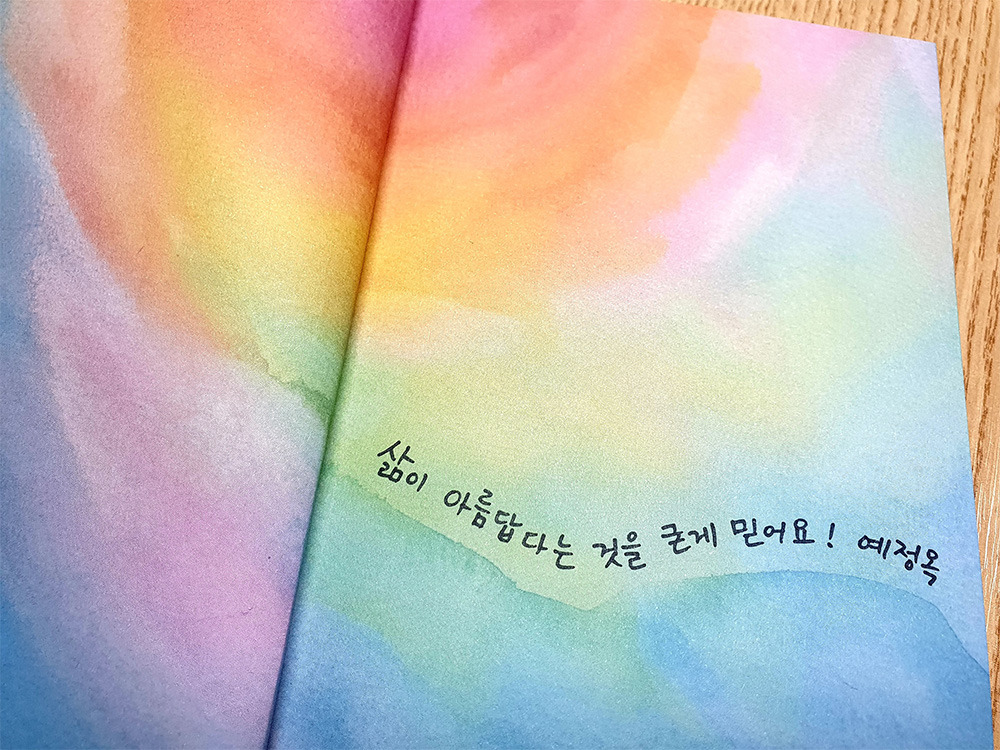 삶이 아름답다는 것을 굳게 믿어요! 예정옥